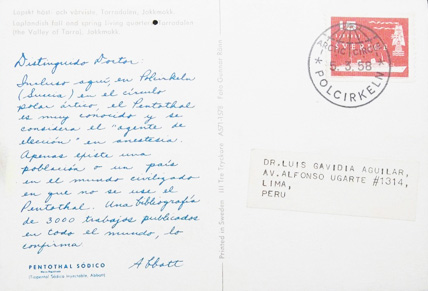 Lapski höst- och vårviste. Tarradalen, Jokkmokk.
Laplandish fall and spring living quarters, Tarradalen
(the Valley of Tarra), Jokkmokk.
Distinguido Doctor:
Incluso aquí, en Polcirkeln
(Suecia) en el círculo
polar ártico, el Pentothal
es muy conocido y se
considera el "agente de
elección" en anestesia.
Apenas existe una
población o un país
en el mundo civilizado
en que no se use el
Pentothal. Una bibliografía
de 3000 trabajos publicados
en todo el mundo, lo
confirma
Abbott
PENTOTHAL SÓDICO
(Tiopental Sódico Inyectable, Abbott)
Printed in Sweden
15
SVERIGE
5.3.58
POLCIRKELN
DR. LUIS GAVIDIA AGUILAR,
AV. ALFONSO UGARTE #1314,
LIMA,
PERU